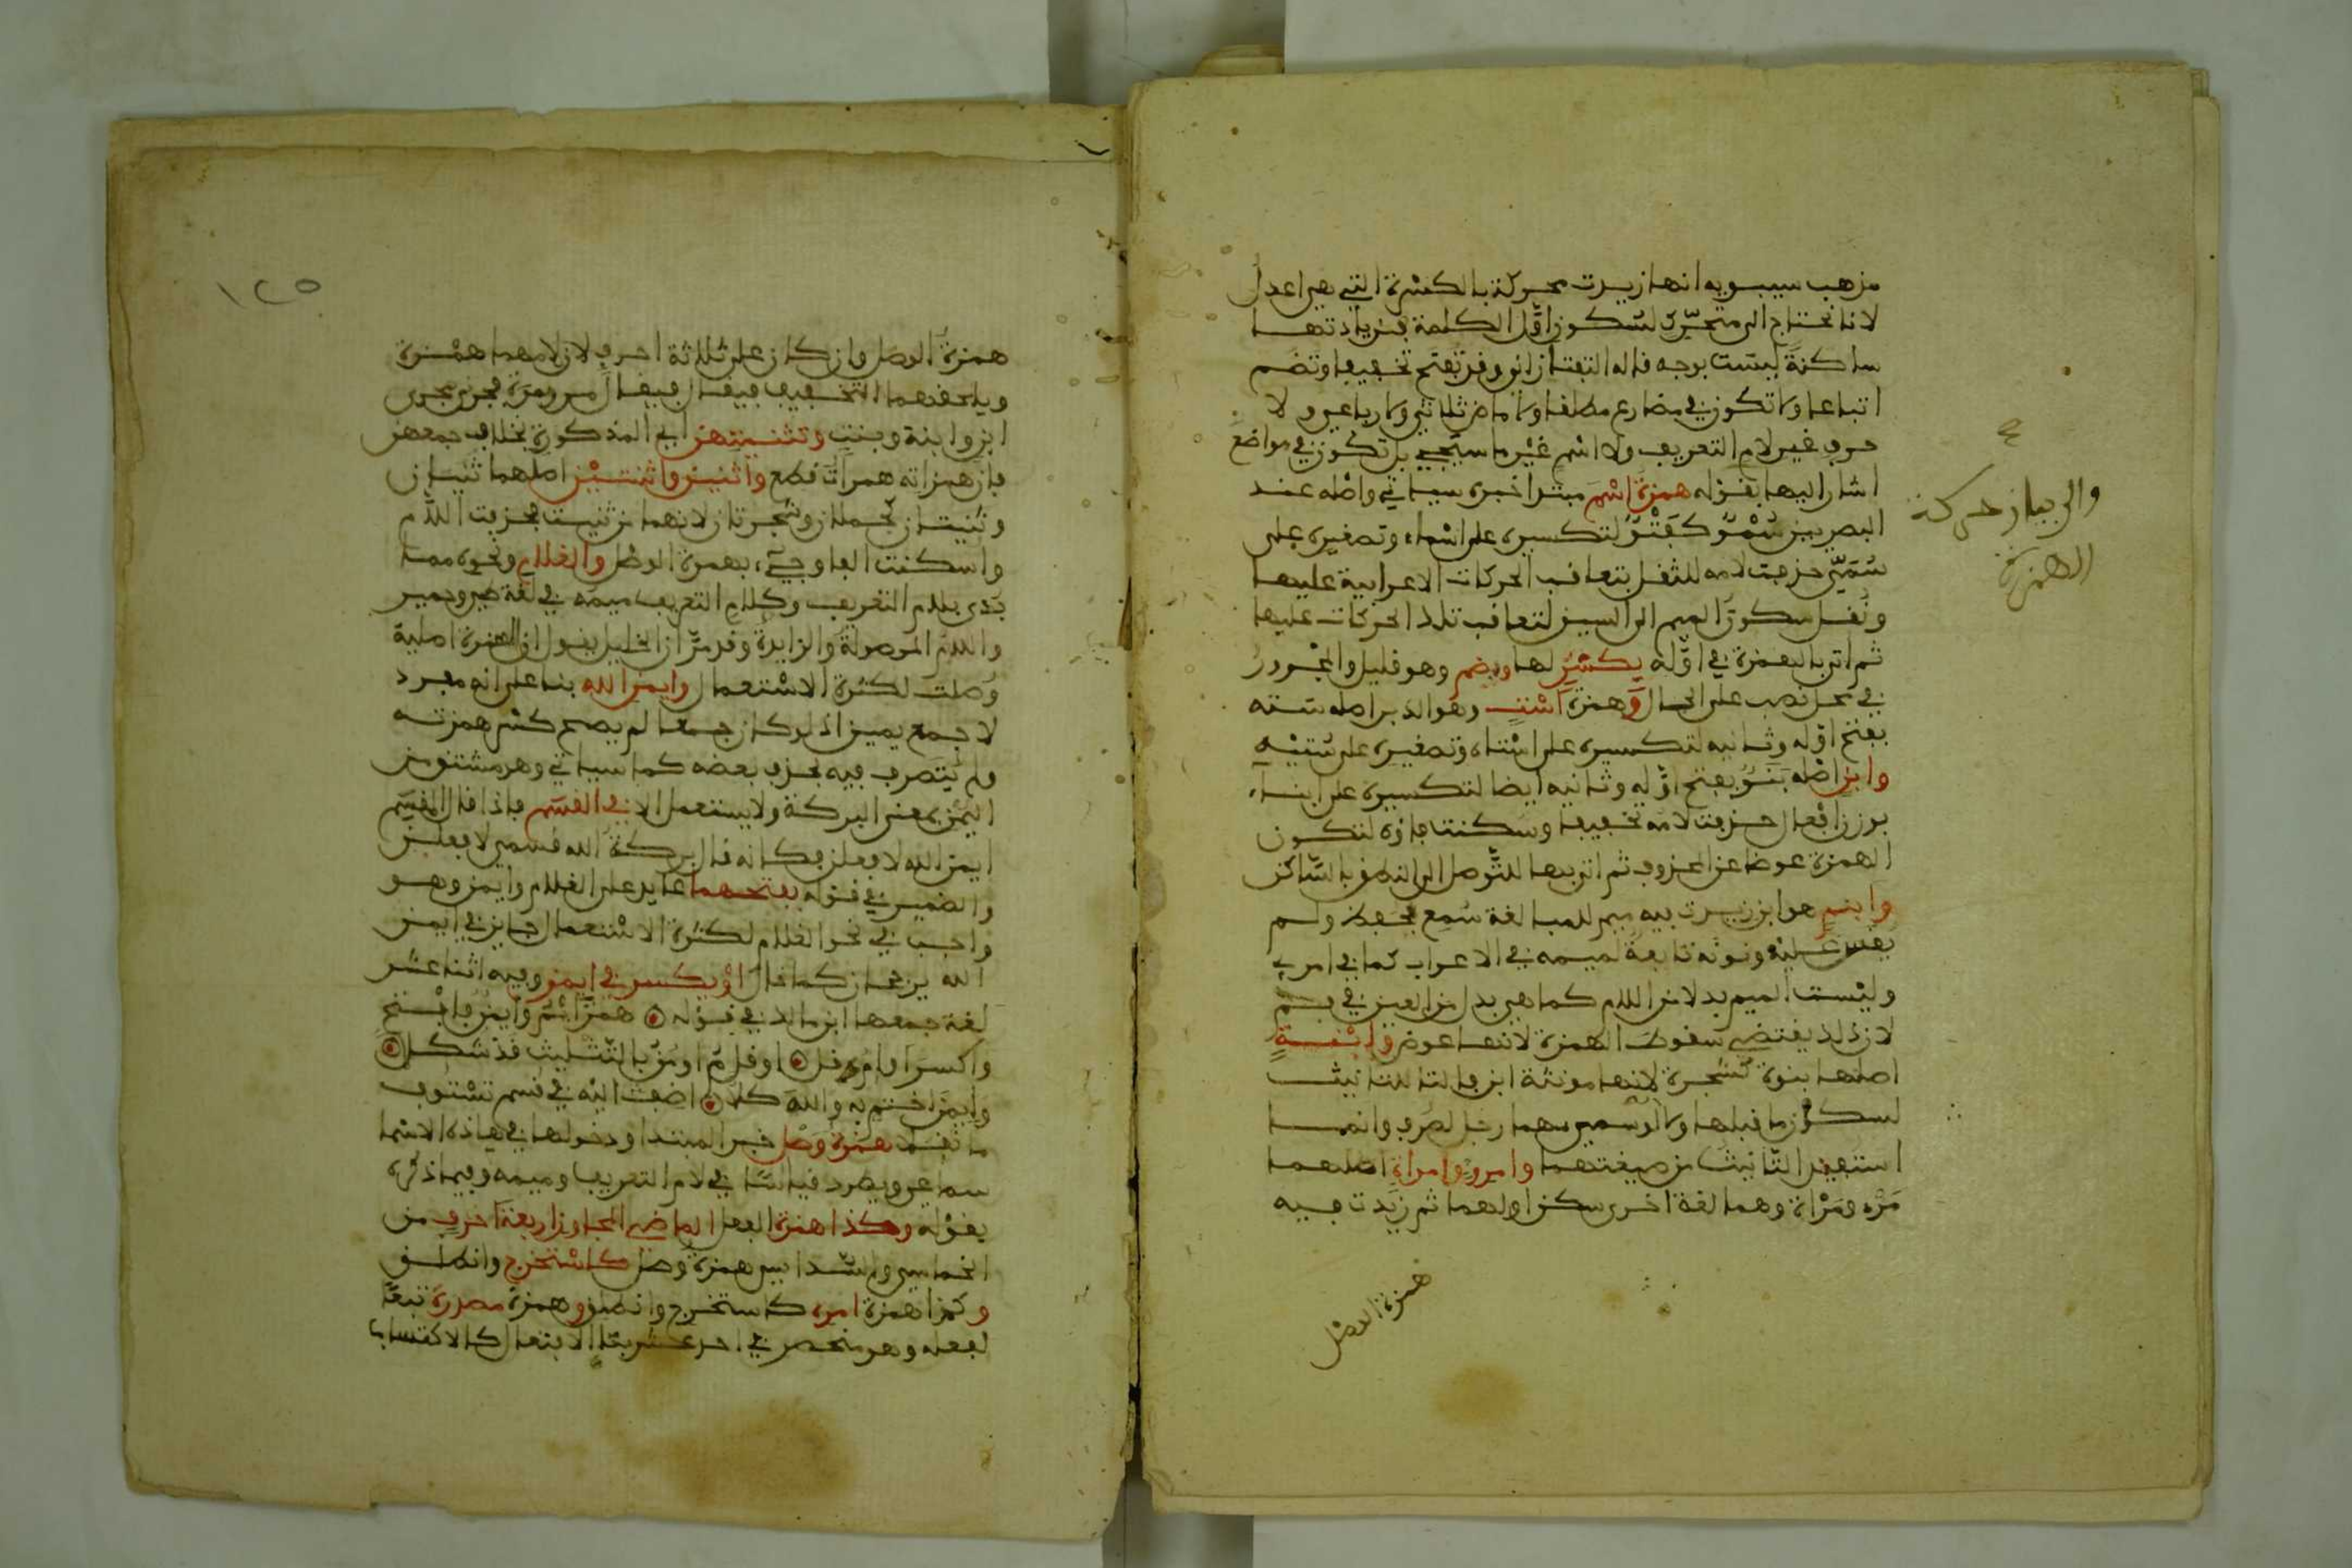 مذهب سيبويه انها زيدت محركة بالكسرة التي هي اعدل
لانا نحتاج الى متحرّك لسكون اوّل الكلمة فزيادتها
ساكنةً ليست بوجه قاله التفتازاني وقد تفتح تخفيفا وتضم
اتباعا ولا تكون في مضارع مطلقا ولا ماض ثلاثي ولا رباعي ولا
حرف غير لام التعريف ولا اسم غير ما سيجيء بل تكون في مواضع
اشار اليها بقوله همزةُ اسْمٍ مبتدا خبره سياتي واصله عند
البصريين سُمْوٌ كقِنْوٌ لتكسيره على اسْماء وتصغيره على
سُمَيّ حذفت لامه للثقل بتعاقب الحركات الاعرابية عليها
ونُقل سكون الميم الى السين لتعاقب تلك الحركات عليها
ثم اتى بالهمزة في اوّله بكسْرٍ لها وبضم وهو قليل والمجْرور
في محل نصب على الحال وَهمزة اسْتٍ وهو الدبر اصله سَتَه
بفتح اوّله وثانيه لتكسيره على اسْتاه وتصغيره على سُتَيْهٍ
وابنٍ اصْله بَنَوٌ بفتح اوّله وثانيه ايضا لتكسيره على ابناء
بوزن افْعال حذفت لامه تخفيفا وسكنت فاؤه لتكون
الهمزة عوضا عن المحذوف ثم اتى بها للتّوصل الى النطق بالسّاكن
وابنمٍ هو ابن زيدت فيه ميم للمبالغة سُمع فحفظ ولم
يقس عليْه ونونه تابعة لميمه في الاعراب كما في امرء
وليْست الميم بدلا من اللام كما هي بدل من العين في فم
لان ذلك يقتضي سقوط الهمزة لانها عوض وابْنةٍ
اصلها بنوة كشجرة لانها مونثة ابن والتا للتانيث
لسكون ما قبلها
استفيد التّانيث من صيغتهما وامرءٍ وامراةٍ اصلهما
مَرْء ومَرْاة وهما لغة اخرى سكن اولهما ثم زيدت فيه
همزة الوصْل
والى بيان حركة
الهمزة
١٢٥
همزةُ الوصل وان كان على ثلاثة احرف لان لامهما همْزة
ويلحقهما التخفيف فيقال فيقال مر ومرَة فجرى مجرى
ابن وابنة وبنتٍ وتثنيتهن اي المذكورة بخلاف جمعهن
فان همزاته همزات قطع واثنين واثنتيْن اصلهما ثنيان
وثنيتان كجملان وشجرتان لانهما من ثنيت فحذفت اللّام
واسكنت الفا وجيء بهمزة الوصْل والغلام ونحوه مما
بُدى بلام التعريف وكلام التعريف ميمه في لغة طيء وحمير
واللام الموصولة والزايدة وقد مرّ ان الخليل يقول ان الهمزة اصلية
وُصلت لكثرة الاسْتعمال وايمن الله بنا على انه مفرد
لا جمع يمين اذ لو كان جمعا لم يصح كسْر همزته
ولم يُتصرف فيه بحذف بعضه كما سياتي وهو مشتق من
اليُمْن بمعنى البركة ولا يستعمل الا في القسَم فاذا قال المقسِم
ايمن الله لا فعلن فكانه قال بركةُ الله قسَمي لا فعلن
والضمير في قوله بفتحهما عايد على الغلام وايمن وهو
واجب في نحو الغلام لكثرة الاسْتعمال جايز في ايمن
الله يرجحان كما قال اوْ بكسر في ايمن وفيه اثنا عشر
لغة جمعها ابن مالك في قوله ۞ همزَ ايْمٍ وايمنٍ فافْتح
واكسر او امُ قل ۞ او قل مُ او مُنُ بالتّثليث قد شكلا ۞
وايمنُ اختم به والله كلا ۞ اضف اليْه في قسم تسْتوف
ما نُقلا همزة وصْل خبر المبتدا ودخولها في هاذه الاسْما
سماعي ويطرد قياسًا في لام التعريف وميمه وفيما ذكره
بقوْله وهكذا همزة الفعل الماضي المجاوز اربعة احرفٍ من
الخماسي والسّداسي همزة وصل كاسْتخرج وانطلق
وكذا همزة امره كاستخرج وانطلق وهمزة مصدره تبعًا
لفعله وهو منحصر في احد عشر بنا الافتعال كالاكتساب